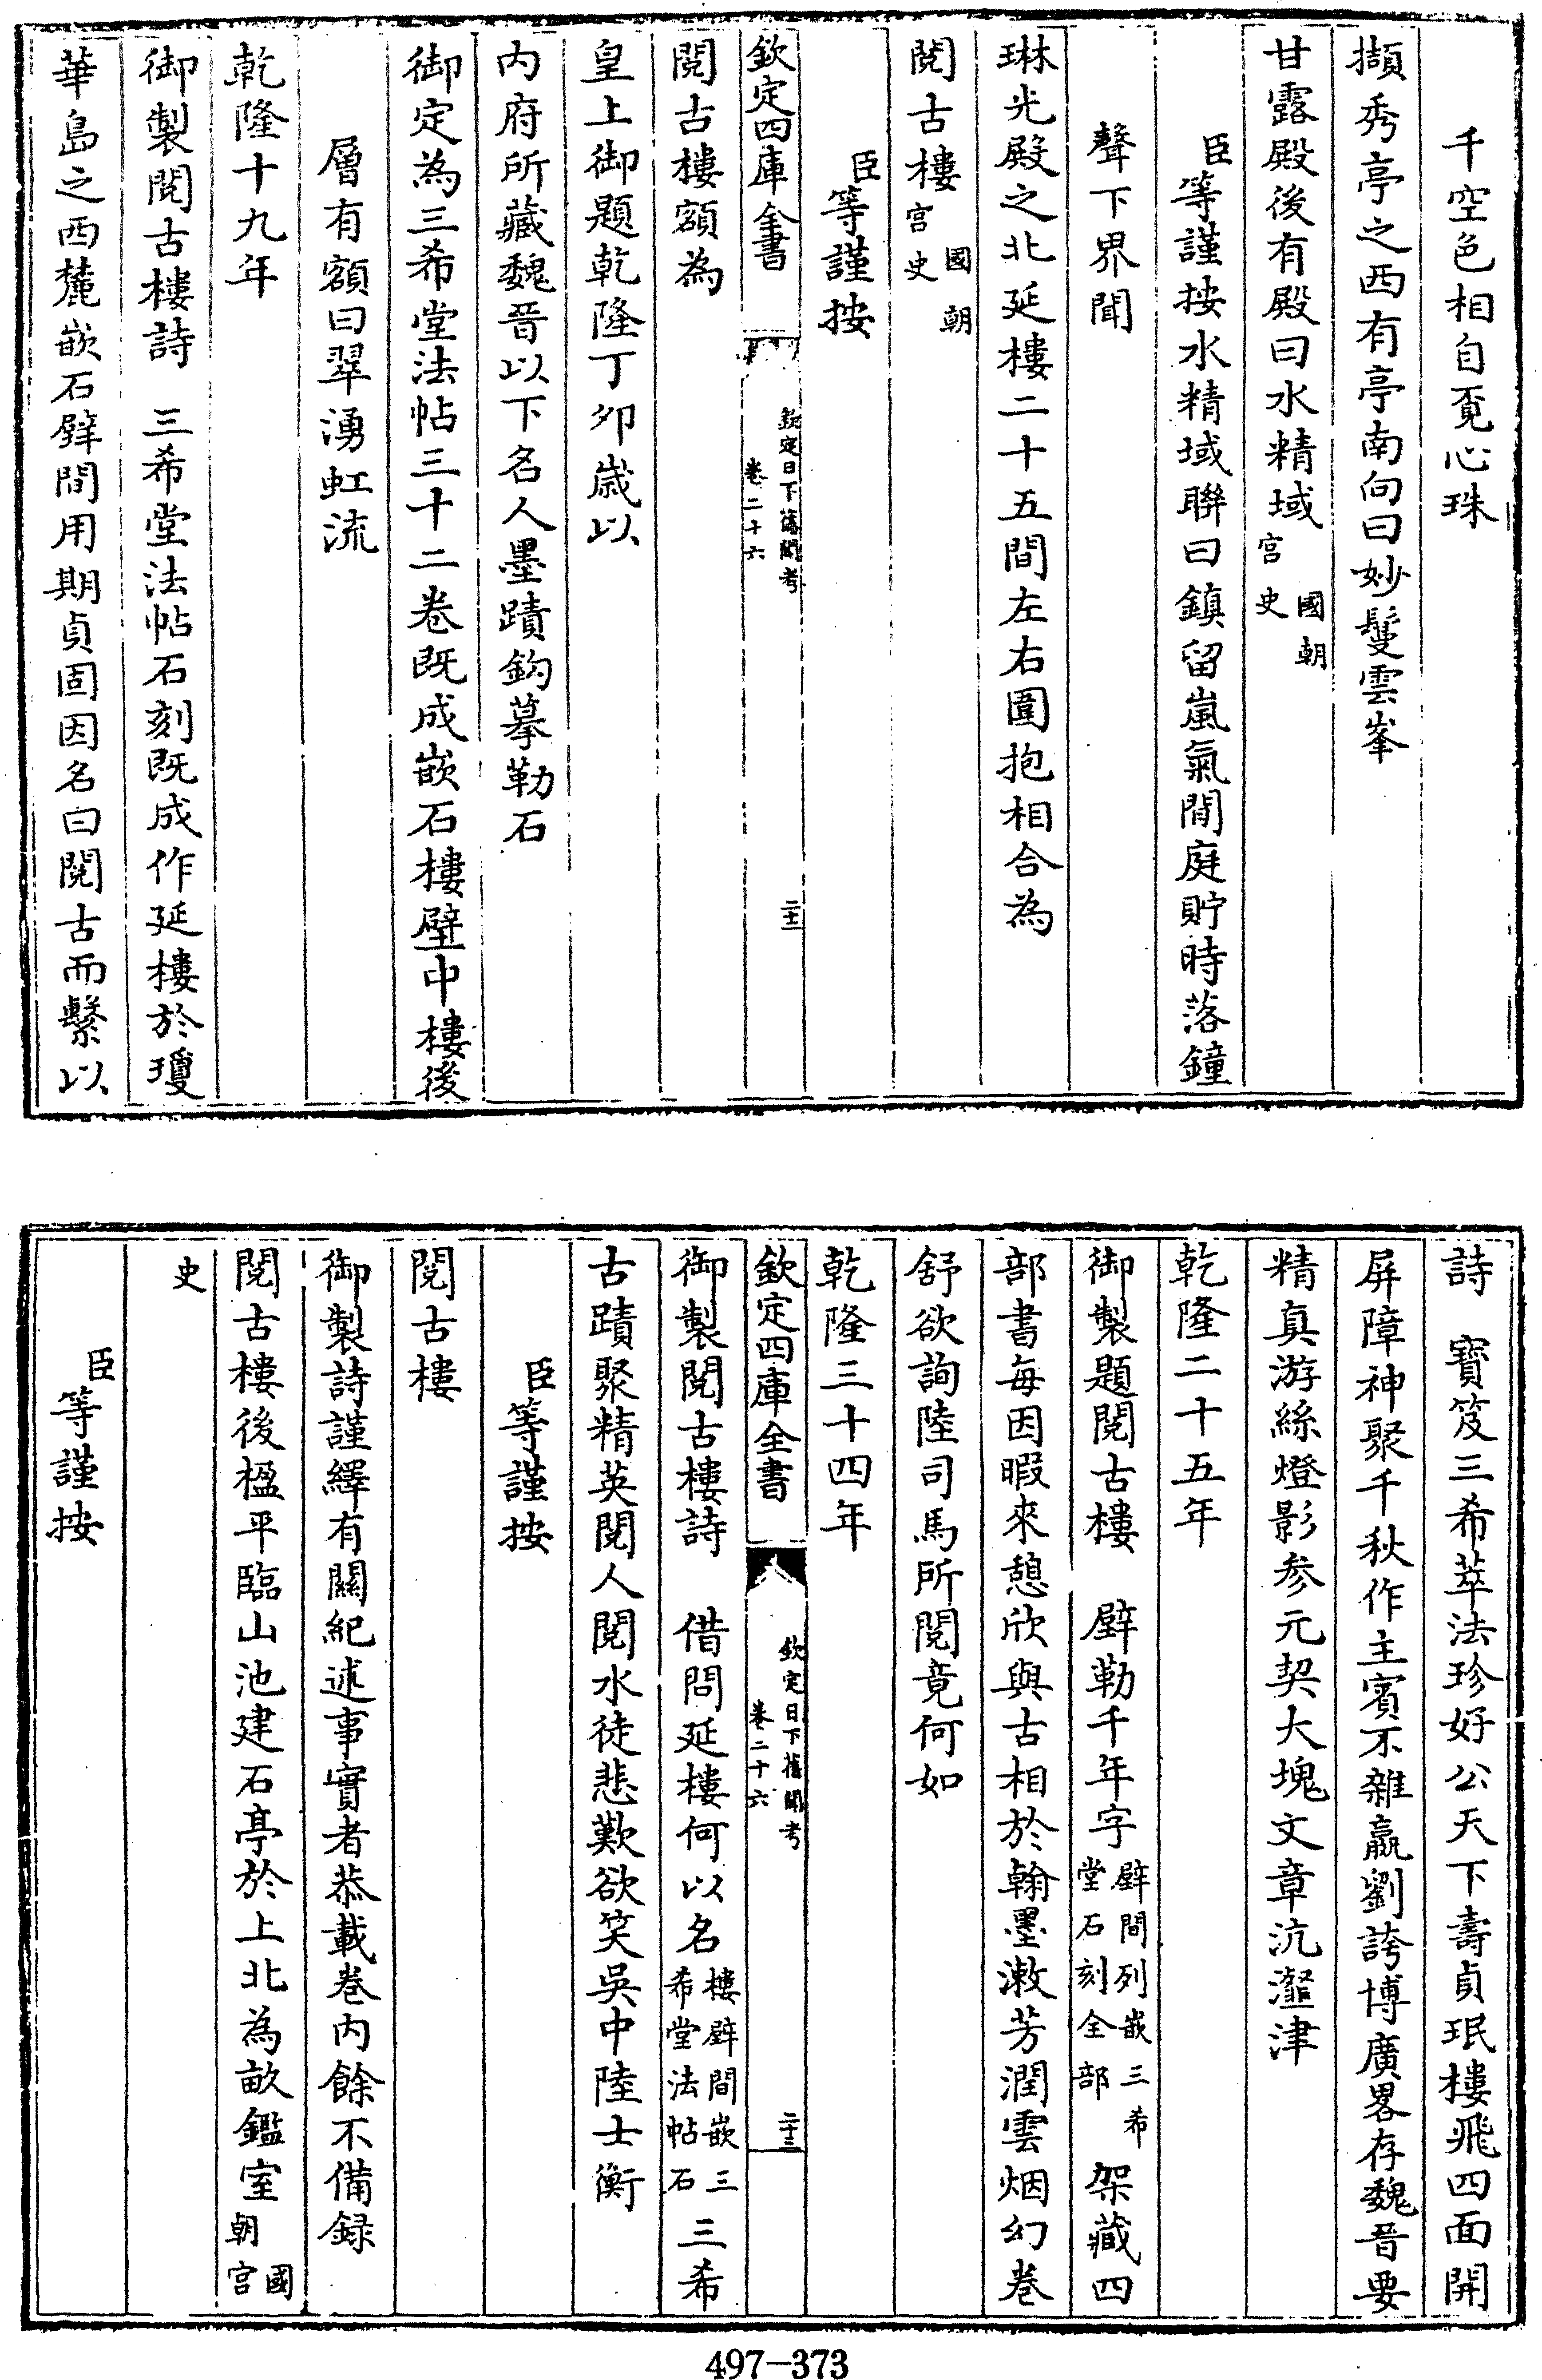 千空色相自覔心珠
擷秀亭之西有亭南向曰妙鬘雲峯
甘露殿後有殿曰水精域國朝宫史
臣等謹按水精域聯曰鎮留嵐氣閒庭貯時落鐘
聲下界聞
琳光殿之北延樓二十五間左右圍抱相合為
閱古樓國朝宫史
臣等謹按
欽定四庫全書
欽定日下舊聞考
卷二十六
二十二
閱古樓額為
皇上御題乾隆丁夘歳以
内府所藏魏晉以下名人墨蹟鈎摹勒石
御定為三希堂法帖三十二卷既成嵌石樓壁中樓後
層有額曰翠湧虹流
乾隆十九年
御製閱古樓詩 三希堂法帖石刻既成作延樓於瓊
華島之西麓嵌石壁間用期貞固因名曰閱古而繫以
詩 寶笈三希萃法珍好公天下壽貞珉樓飛四面開
屏障神聚千秋作主賓不雜嬴劉誇博廣畧存魏晉要
精真游絲燈影參元契大塊文章沆瀣津
乾隆二十五年
御製題閱古樓 壁勒千年字壁間列嵌三希堂石刻全部架藏四
部書每因暇來憩欣與古相於翰墨漱芳潤雲烟幻卷
舒欲詢陸司馬所閱竟何如
乾隆三十四年
欽定四庫全書
欽定日下舊聞考
卷二十六
二十三
御製閱古樓詩 借問延樓何以名樓壁間嵌三希堂法帖石三希
古蹟聚精英閱人閱水徒悲歎欲笑吳中陸士衡
臣等謹按
閱古樓
御製詩謹繹有關紀述事實者恭載卷内餘不備録
閱古樓後楹平臨山池建石亭於上北為畝鑑室國朝宫
史
臣等謹按
497-373